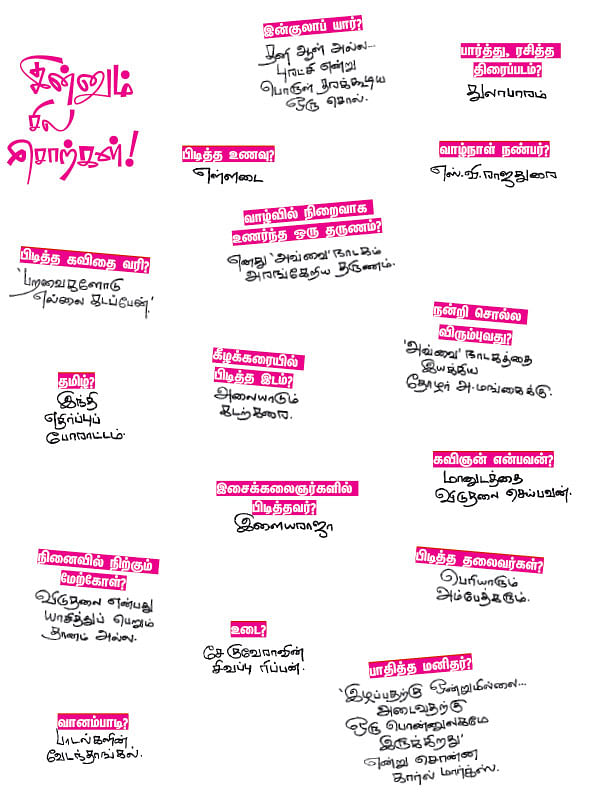 இன்னும்
சில
சொற்கள்!
இன்குலாப் யார்?
தனி ஆள் அல்ல...
புரட்சி என்று
பொருள் தரக்கூடிய
ஒரு சொல்.
பார்த்து, ரசித்த
திரைப்படம்?
துலாபாரம்
பிடித்த உணவு?
எள்ளடை
வாழ்நாள் நண்பர்?
எஸ்.வி.ராஜதுரை
வாழ்வில் நிறைவாக
உணர்ந்த ஒரு தருணம்?
எனது 'அவ்வை' நாடகம்
அரங்கேறிய தருணம்.
பிடித்த கவிதை வரி?
'பறவைகளோடு
எல்லை கடப்பேன்.'
நன்றி சொல்ல
விரும்புவது?
'அவ்வை' நாடகத்தை
இயக்கிய
தோழர் அ.மங்கைக்கு.
கீழக்கரையில்
பிடித்த இடம்?
அலையாடும்
கடற்கரை.
தமிழ்?
இந்தி
எதிர்ப்புப்
போராட்டம்.
கவிஞன் என்பவன்?
மானுடத்தை
விடுதலை செய்பவன்.
இசைக்கலைஞர்களில்
பிடித்தவர்?
இளையராஜா
நினைவில் நிற்கும்
மேற்கோள்?
விடுதலை என்பது
யாசித்துப் பெறும்
தானம் அல்ல.
பிடித்த தலைவர்கள்?
பெரியாரும்
அம்பேத்கரும்.
உடை?
சேகுவேராவின்
சிவப்பு ரிப்பன்.
பாதித்த மனிதர்?
'இழப்பதற்கு ஒன்றுமில்லை...
அடைவதற்கு
ஒரு பொன்னுலகமே
இருக்கிறது'
என்று சொன்ன
கார்ல் மார்க்ஸ்.
வானம்பாடி?
பாடல்களின்
வேடந்தாங்கல்.